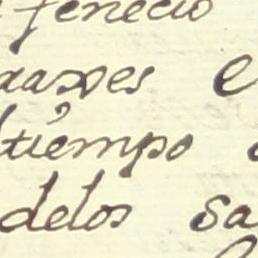 fenecio
raxes e
tiempo
delos sa